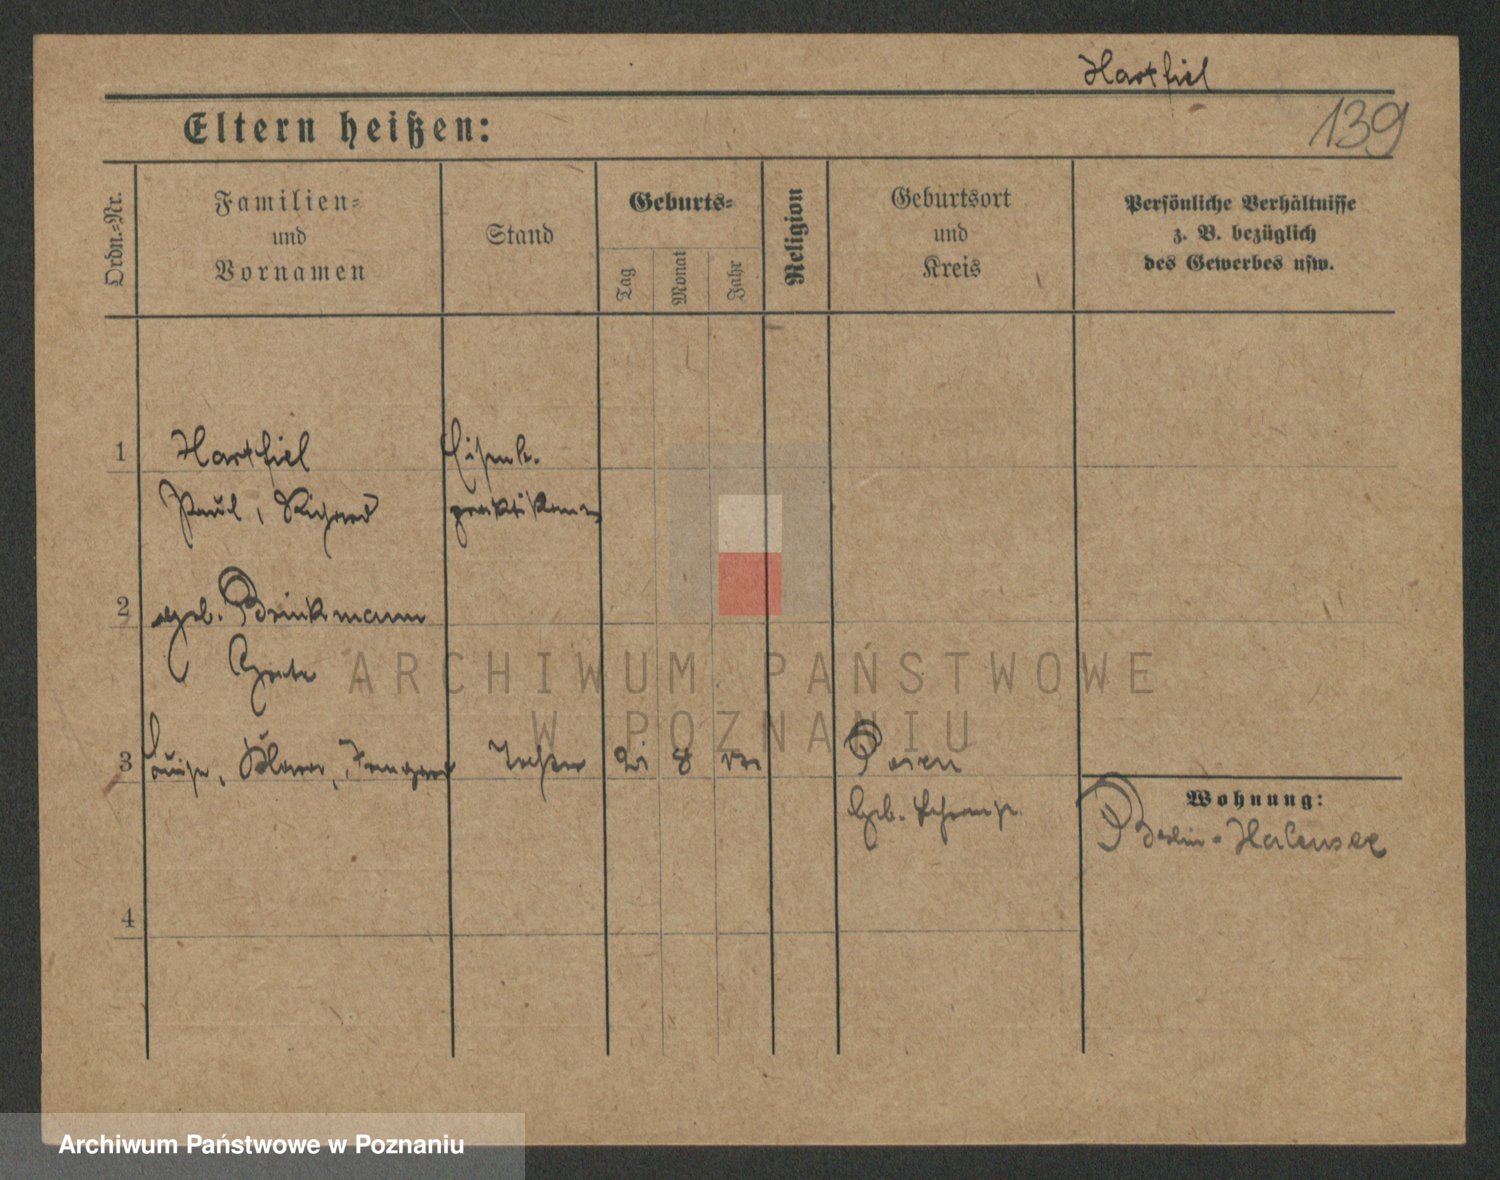 Hartfiel
139
Eltern heißen:
Ordn.-Nr.
Familien-
und
Vornamen
Stand
Geburts-
Tag
Monat
Jahr
Religion
Geburtsort
und
Kreis
Persönliche Verhältnisse
z. B. bezüglich
des Gewerbes usw.
1
Hartfiel
Eisenb.
Paul, Richard
praktikant
2
geb. Brinkmann
Grete
3
Louise, Klara, Irmgard
Tochter
21
8
Posen
Geb.
Wohnung:
Berlin-Halensee
4
ARCHIWUM PAŃSTWOWE
W POZNANIU
Archiwum Państwowe w Poznaniu